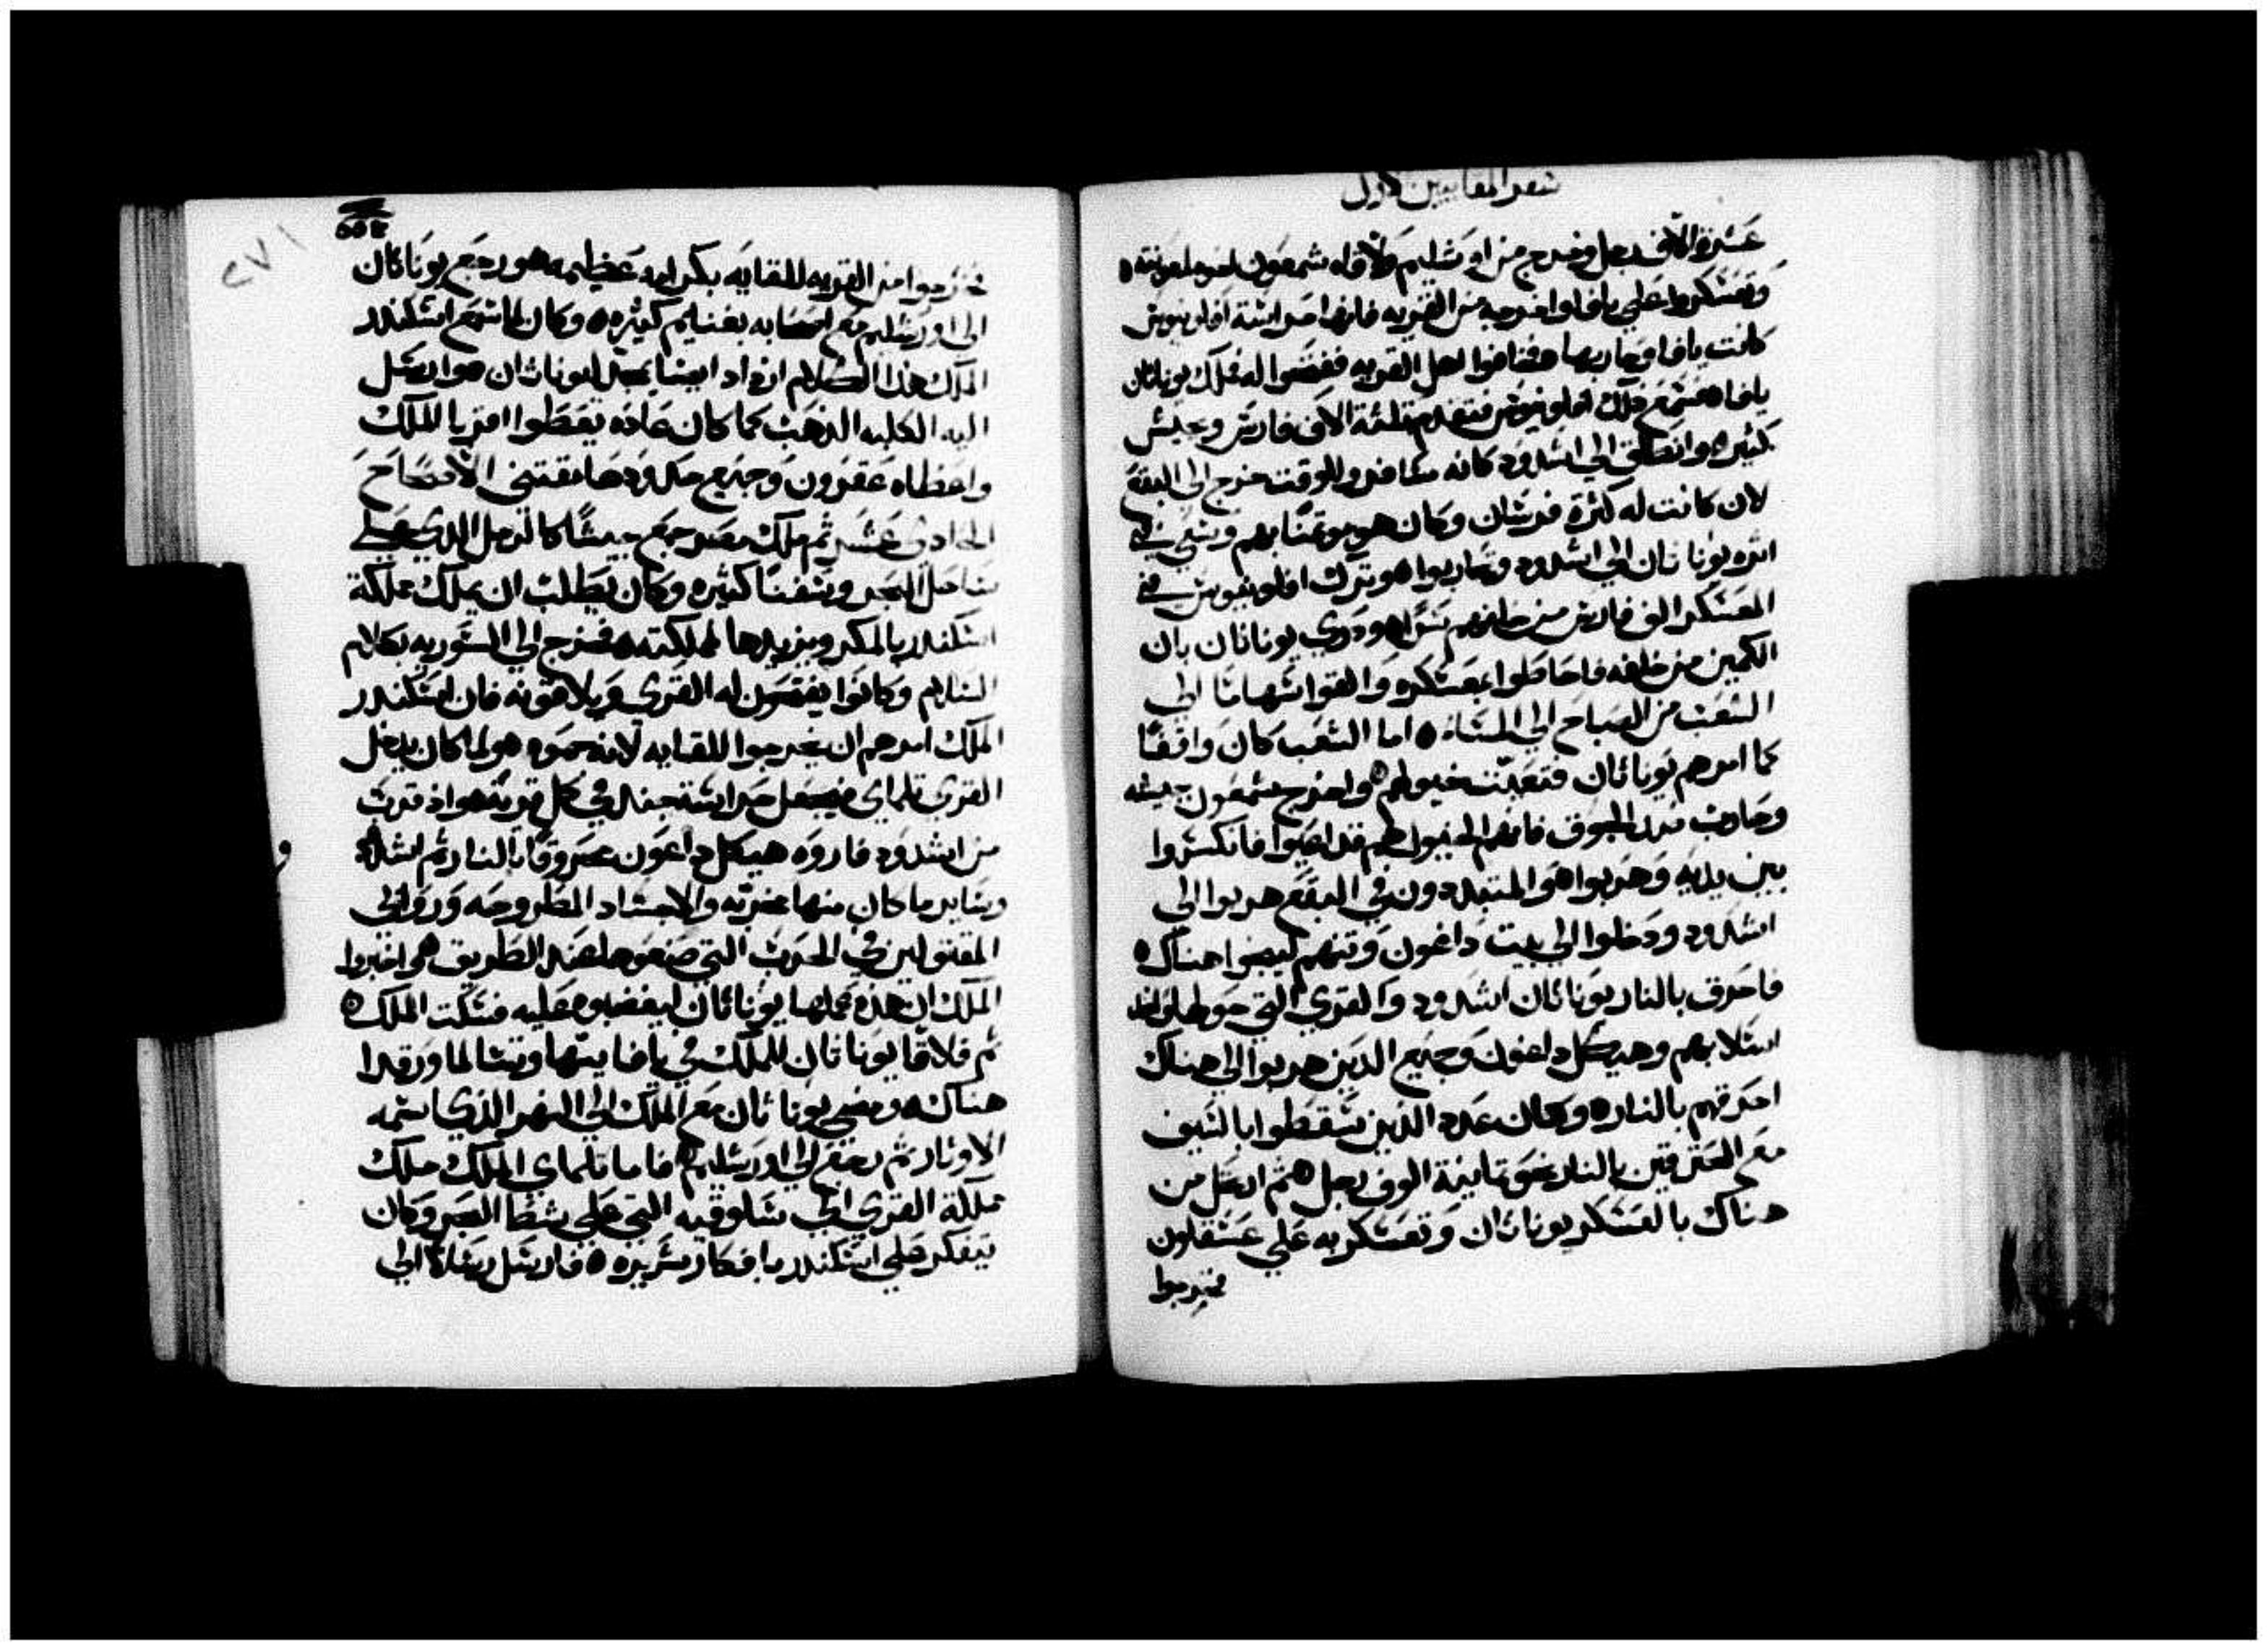 سفر المقابيين الاول
عشرة الاف رجل وخرج من اورشليم ولاقاه شمعون اخوه لمعونته
وتعسكروا علي يافا واخرجه من القريه فانها حراسة افلونيوس
كانت يافا وحاربها فخافوا اهل القريه ففتحوا له فملك يوناثان
يافا فسمع ذلك افلونيوس فتقدم بثلثة الاف فارس وجيش
كثير وانطلق الي اشدود كانه مسافر وللوقت خرج الي البقعه
لان كانت له كثرة فرسان وكان هو موتمنًا بهم وسعي في
اثره يوناثان الي اشدود وتحاربوا وترك افلونيوس في
المعسكر الف فارس من خلفهم سرًا ودري يوناثان بان
الكمين من خلفه فاحاطوا بمعسكره والقوا سهامًا الي
الشعب من الصباح الي المساء اما الشعب كان واقفًا
كما امرهم يوناثان فتعبت خيولهم واخرج شمعون جيشه
وحارب ضد الجوق فانهم الخيول لهم قد اعيوا فانكسروا
بين يديه وهربوا والمتبددون في البقع هربوا الي
اشدود ودخلوا الي بيت داغون وثنهم ليخلصوا هناك
فاحرق بالنار يوناثان اشدود والقري التي حولها واخذ
اسلابهم وهيكل داغون وجميع الذين هربوا الي هناك
احرقهم بالنار وكان عدد الذين سقطوا بالسيف
مع المحترقين بالنار نحو ثمانية الوف رجل ثم ارتحل من
هناك بالعسكر يوناثان وتعسكر به علي عسقلون
فخرجوا
٢٧١
فخرجوا من القريه للقايه بكرامه عظيمه ورجع يوناثان
الي اورشليم مع اصحابه بغنايم كثيره وكان لما سمع اسكندر
الملك هذا الكلام ازداد ايضا يمجد ليوناثان وارسل
اليه الكلبه الذهب كما كان عاده يعطوا اقربا الملك
واعطاه عقرون وجميع حدودها يقتني الاصحاح
الحادي عشر ثم ملك مصر جمع جيشًا كالرمل الذي علي
ساحل البحر وسفنًا كثيره وكان يطلب ان يملك مملكة
اسكندر بالمكر ويزيدها لمملكته فخرج الي السوريه بكلام
السلام وكانوا يفتحون له القري ويلاقونه فان اسكندر
الملك امرهم ان يخرجوا للقايه لانه حموه ولما كان يدخل
القري تلماي فيجعل حراسة جند في كل قرية واذ قرب
من اشدود فاروه هيكل داغون محروقًا بالنار ثم اشدود
وساير ما كان منها مخربه والاجساد المطروحه وروابي
المقتولين في الحرب التي صنعوها عند الطريق واخبروا
الملك ان هذه عملها يوناثان ليغضبوه عليه فسكت الملك
ثم فلاقا يوناثان للملك في يافا بتها وتسالما ورقدا
هناك ومضي يوناثان مع الملك الي النهر الذي اسمه
الاوثار ثم رجع الي اورشليم فاما تلماي الملك ملك
مملكة القري الي سلوقيه التي علي شط البحر وكان
يتفكر علي اسكندر بافكار شريره فارسل رسلا الي